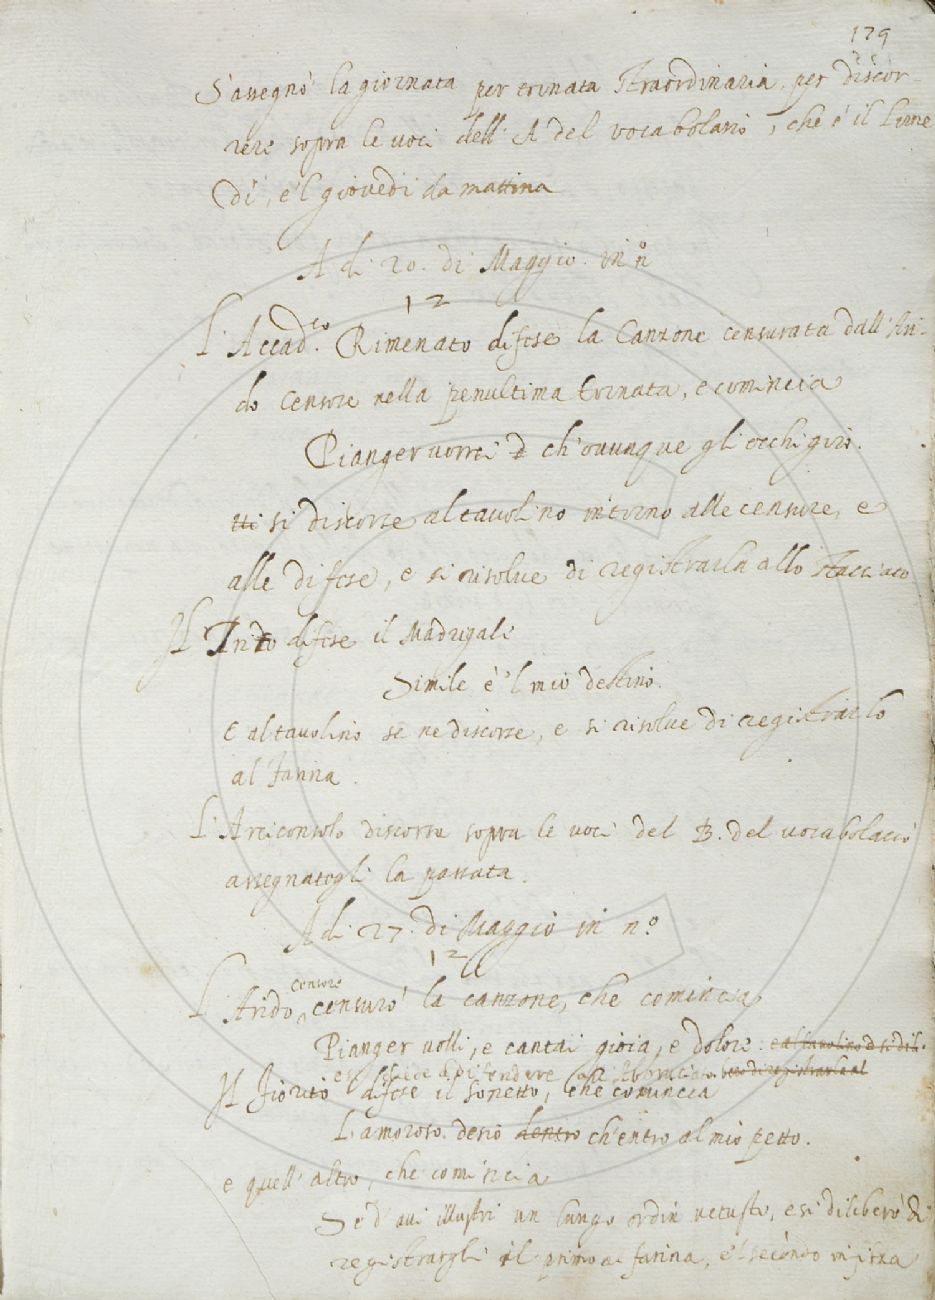 179
S'assegnò la giornata per tornata straordinaria, per discor-
rere sopra le voci dell'A del vocabolario, che è il Lune
dì, e'l giovedì da mattina
A di 20. di Maggio in n.º
12
L'Accad.co Rimenato difese la Canzone censurata dall'Ari-
do Censore nella penultima tornata, e comincia
Pianger vorrei ch'ovunque gli occhi giri.
si discorse al tavolino intorno alle censure, e
alle difese, e si risolve di registrarla allo stacciato
Il difese il Madrigale
Simile è 'l mio destino.
E al tavolino se ne discorse, e si risolve di registrarlo
al farina.
L'Arciconsolo discorse sopra le voci del B. del vocabolario
assegnategli la passata.
A di 27. di Maggio in n.º
12
L'Arido censore censurò la canzone, che comincia
Pianger volli, e cantai gioia, e dolore: e al tavolino si dili-
e si diede a difendere berò di registrarla al
Il fiorito difese il sonetto, che comincia
L'amoroso desio dentro ch'entro al mio petto.
e quell'altro, che comincia
Se d'avi illustri un lungo ordin vetusto, e si diliberò di
registrargli il primo a farina, e'l secondo